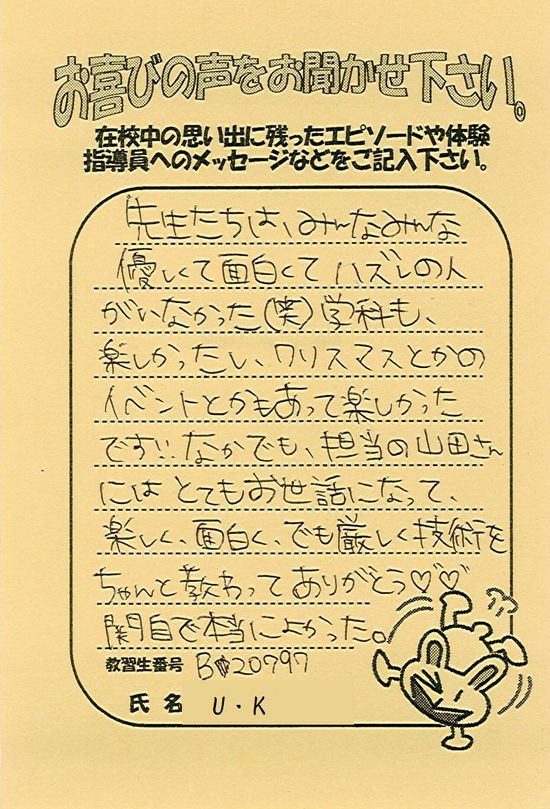 お喜びの声をお聞かせ下さい。
在校中の思い出に残ったエピソードや体験
指導員へのメッセージなどをご記入下さい。
先生たちは、みんなみんな
優しくて面白くてハズレの人
がいなかった(笑)学科も、
楽しかったし、クリスマスとかの
イベントとかもあって楽しかった
です!!なかでも、担当の山田さん
にはとてもお世話になって、
楽しく、面白く、でも厳しく技術を
ちゃんと教わってありがとう♡♡
関自で本当によかった。
教習生番号 B 20797
氏名 U・K